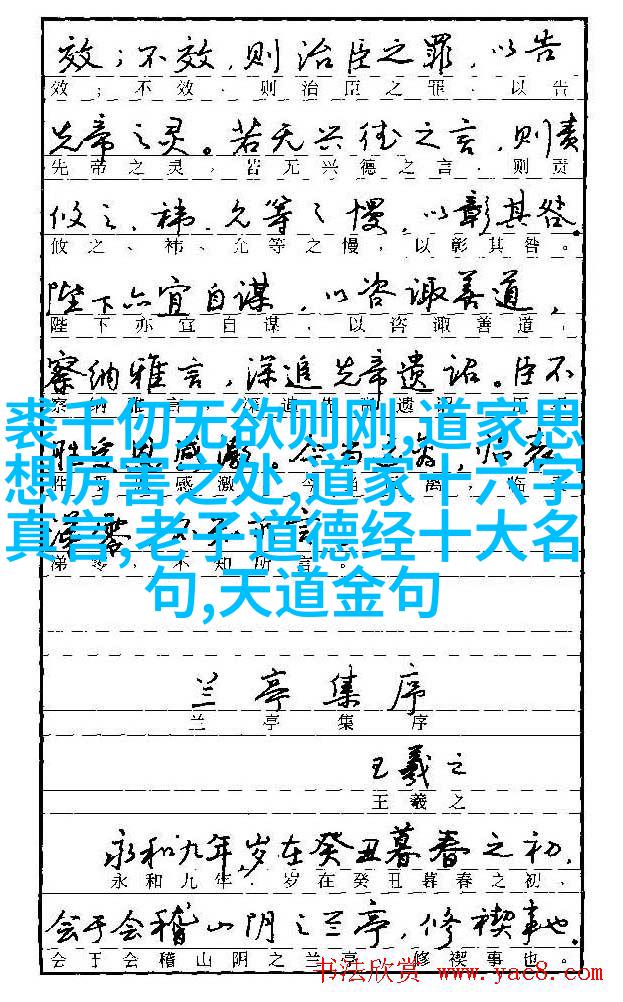 效；不效，则治臣之罪，以告
效；不效、则治臣之罪、以告
先帝之灵。若无兴德之言，则责
先帝之灵，若无兴德之言、则责
攸之、祎、允等之慢，以彰其咎。
攸之、祎、允等之慢，以彰其咎。
陛下亦宜自谋，以咨诹善道，
陛下亦宜自谋，以咨诹善道，
察纳雅言，深追先帝遗诏。臣不
察纳雅言，深追先帝遗诏
裘千仞无欲则刚,道家思
受恩感激。今当
感激
想厉害之处,道家十六字
真言,老子道德经十大名
不知所言。
句,天道金句
兰亭集序
兰亭集序
王羲之
王羲之
永和九年，岁在癸丑暮春之初，
永和九年，岁在癸丑暮春之初、
会于会稽山阴之兰亭，修禊事也。
会于会稽山阴之兰亭，修禊事也。
书法欣赏 www.yac8.com